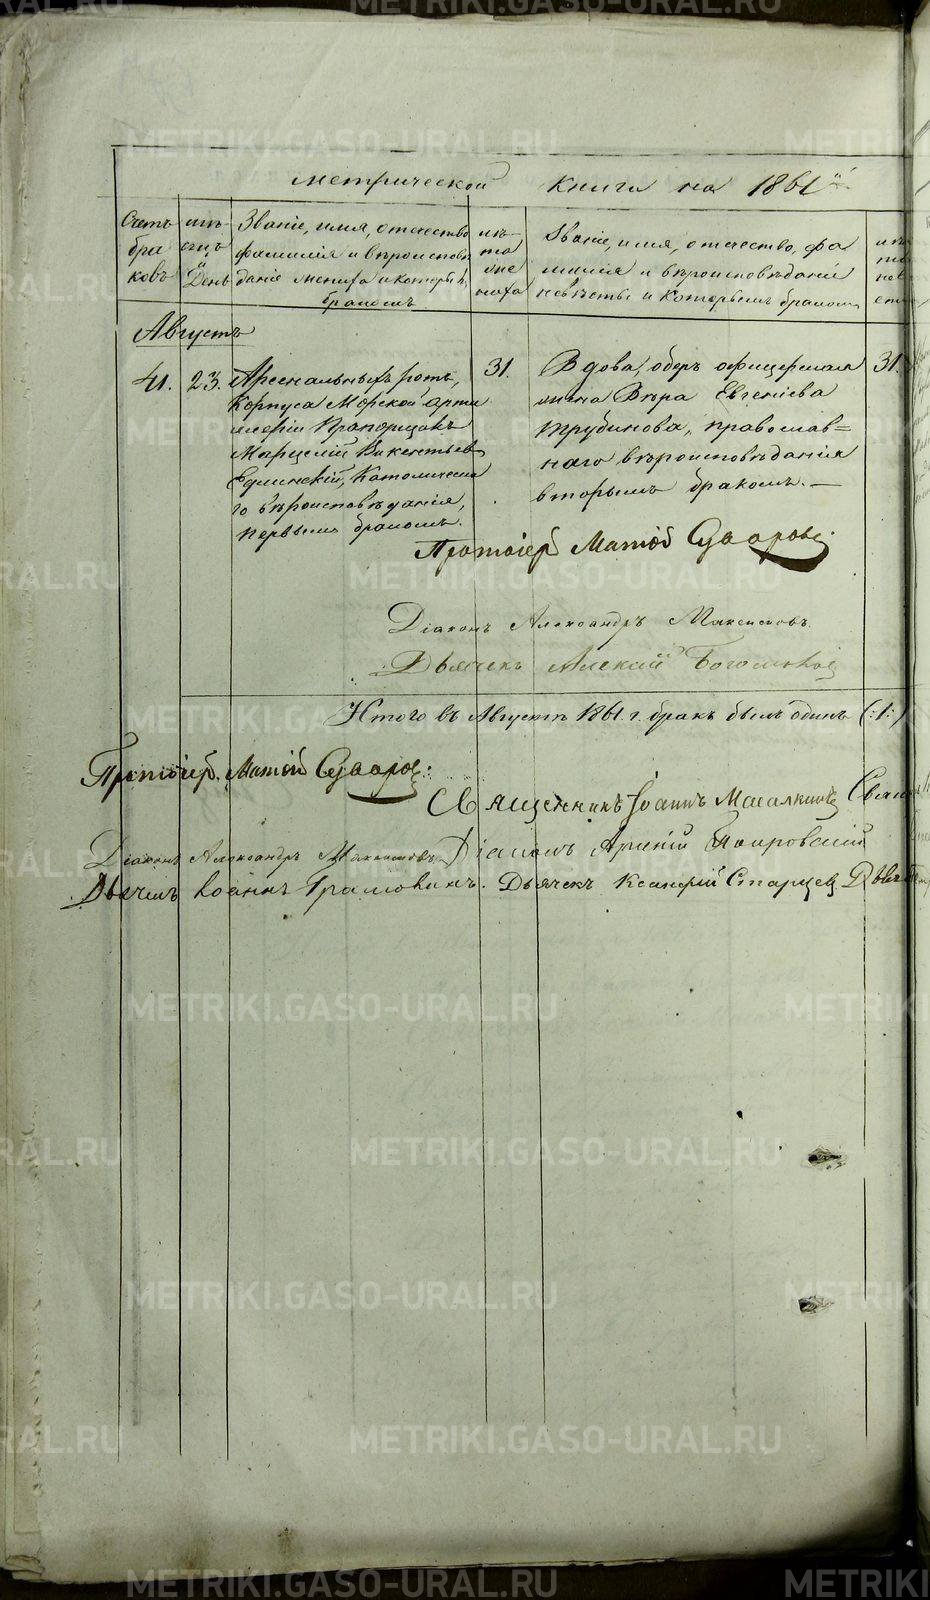 метрической книги на 1861й
Счетъ браковъ
мѣсяцъ и День
Званіе, имя, отчество фамилія и вѣроисповѣданіе жениха и которымъ бракомъ
лѣта жениха
Званіе, имя, отчество, фамилія и вѣроисповѣданіе невѣсты и которымъ бракомъ
Августъ
41.
23.
Арсенальныхъ ротъ,
Корпуса Морской арти
леріи Прапорщикъ
Марцелій Викентьев
Католическа
го вѣроисповѣданія,
первымъ бракомъ.
31.
Вдова, оберъ офицерская
жена Вѣра Евгеніева
Трубинова, православ=
наго вѣроисповѣданія
вторымъ бракомъ. —
31.
Протоіерей Матѳій Суворовъ.
Діаконъ Александръ Максимовъ.
Дьячекъ Алексій
Итого въ Августѣ 1861 г. бракъ былъ одинъ (:1:)
Протоіерей Матѳій Суворовъ:
Священникъ Іоаннъ
Діаконъ Александръ Максимовъ
Діаконъ Арсеній
Дьячекъ Іоаннъ
Дьячекъ Старцев
METRIKI.GASO-URAL.RU